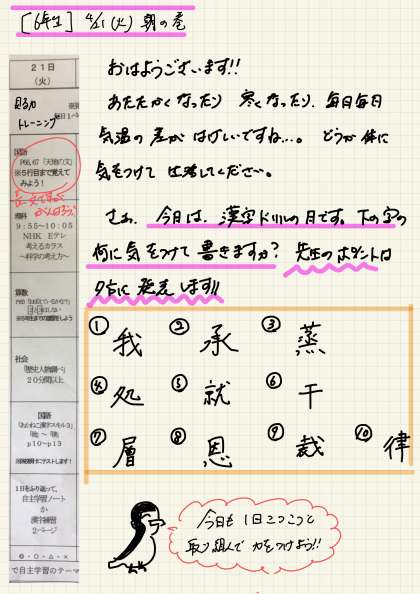 [6年生] 4/21 (火) 朝の巻
おはようございます!!
あたたかくなったり 寒くなったり、毎日毎日
気温の差がはげしいですね…。どうか体に
気をつけて 生活してください。
さぁ、今日は、漢字ドリルの日です。下の字の
何に気をつけて書きますか? 先生のポイントは
夕方に発表します!!
① 我 ② 承 ③ 蒸
④ 処 ⑤ 就 ⑥ 干
⑦ 層 ⑧ 恩 ⑨ 裁 ⑩ 律
今日も1日こつこつと
取り組んで 力をつけよう!!
21日
(火)
見る力
トレーニング
国語
P66,67「天地の文」
※5行目まで覚えて
みよう!
理科
9:55~10:05
NHK Eテレ
考えるカラス
~科学の考え方~
算数
社会
「歴史人物調べ」
20分間以上
国語
p10~p13
1日をふり返って、
自主学習ノート
か
漢字練習
2ページ
◎・○・△・×
で自主学習のテーマ